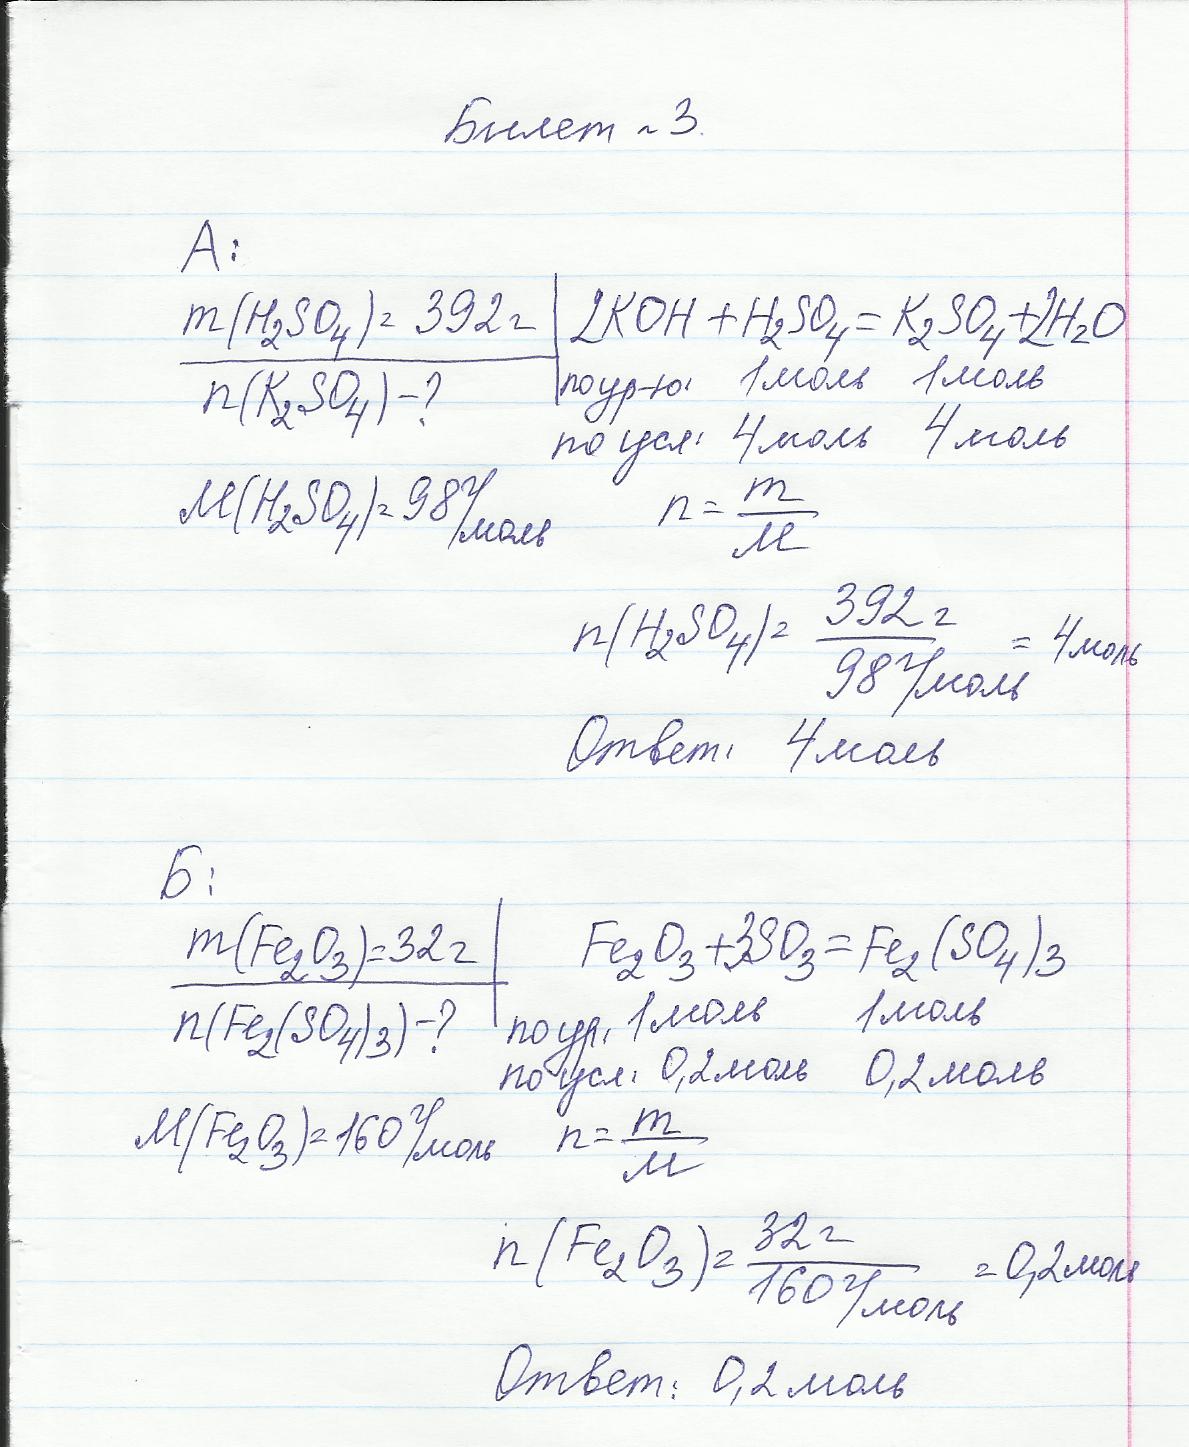 Билет ~ 3.
А:
m(H₂SO₄)= 392г
2KOH + H₂SO₄ = K₂SO₄ + 2H₂O
n(K₂SO₄) -?
по ур-ю: 1моль 1моль
по усл: 4моль 4моль
M(H₂SO₄)= 98г/моль
n = m/M
n(H₂SO₄)= 392г / 98г/моль = 4моль
Ответ: 4моль
Б:
m(Fe₂O₃)=32г
Fe₂O₃ + 3SO₃ = Fe₂(SO₄)₃
n(Fe₂(SO₄)₃) -?
по ур: 1моль 1моль
по усл: 0,2моль 0,2моль
M(Fe₂O₃)=160г/моль
n = m/M
n(Fe₂O₃)= 32г / 160г/моль = 0,2моль
Ответ: 0,2моль